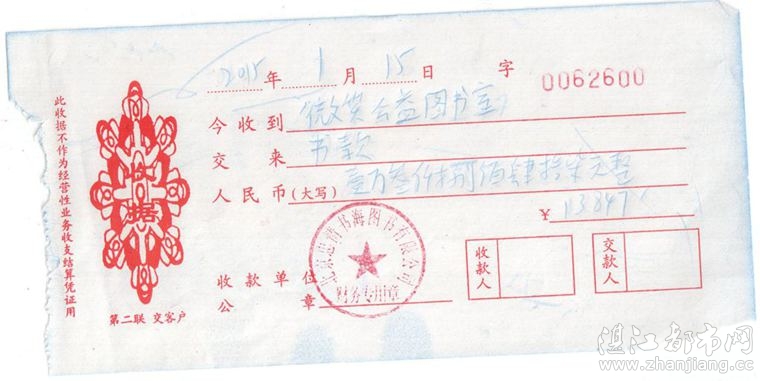 2015年1月15日 字 0062600
今收到 微笑公益图书室
交来 书款
人民币(大写) 壹万叁仟捌佰肆拾柒元整
¥ 13847
收款单位
公章
收款人
交款人
收据
第二联 交客户
此收据不作为经营性业务收支结算凭证用
财务专用章
湛江都市网
www.zhanjiang.cc